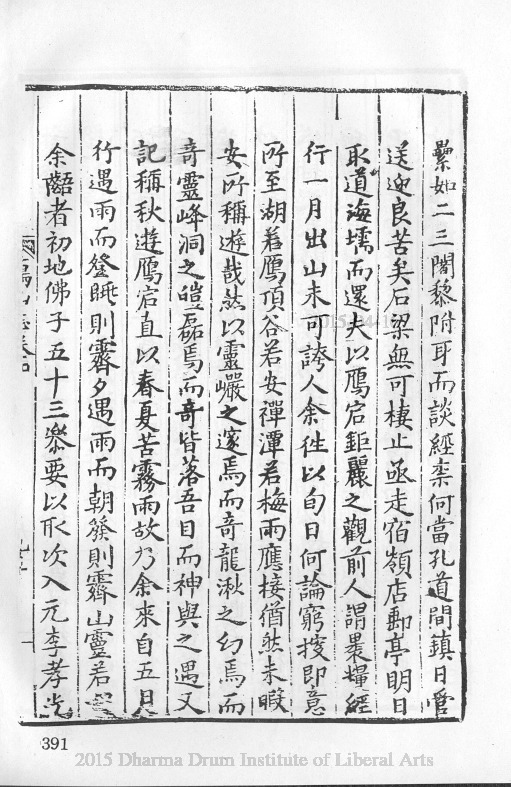 纍如二三闍黎附耳而談經柰何當孔道間鎮日管
送迎良苦矣石梁無可棲止亟走宿嶺店郵亭明日
取道海壖而還夫以鴈宕鉅麗之觀前人謂褁糧經
行一月出山未可誇人余徃以旬日何論窮搜即意
所至湖若鴈頂谷若安禪潭若梅雨應接猶然未暇
安所稱遊哉然以靈巖之邃焉而竒龍湫之幻焉而
竒靈峰洞之皚磊焉而竒皆落吾目而神與之遇又
記稱秋遊鴈宕直以春夏苦霧雨故乃余來自五日
行遇雨而發眺則霽夕遇雨而朝發則霽山靈若
余齬者初地佛子五十三叅要以取次入元李孝光
391
2015 Dharma Drum Institute of Liberal Arts